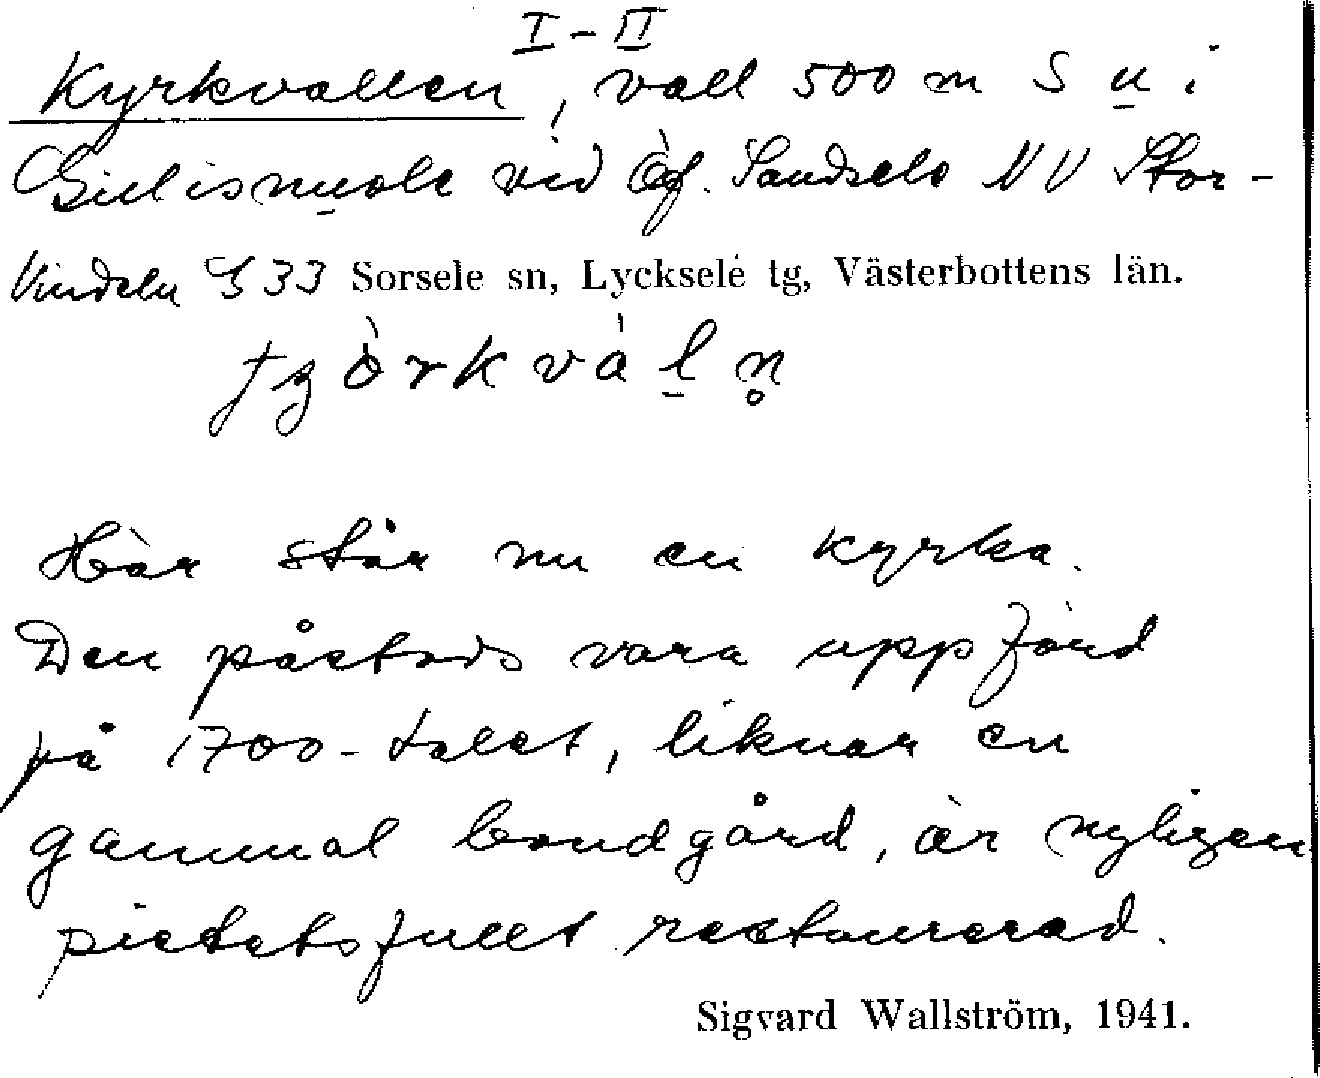 I-II
Kyrkvallen, vall 500 m S u i
Gielisnuole vid Öf. Sandsele NV Stor-
Vindeln S 33 Sorsele sn, Lycksele tg, Västerbottens län.
Här står nu en kyrka.
Den påstods vara uppförd
på 1700-talet, liknar en
gammal bondgård, är nyligen
pietetsfullt restaurerad.
Sigvard Wallström, 1941.